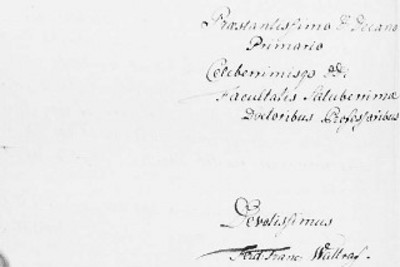 Præstantissimo D. Decano
Primario
Celeberrimisqe DD:
Facultatis Saluberrimæ
Doctoribus Professoribus
Devotissimus
Ferd. Franc. Wallraf.